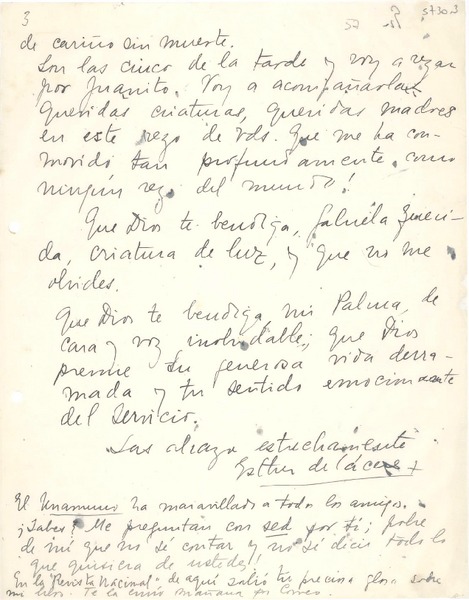 3
57303
de cariño sin muerte.
Son las cinco de la tarde y voy a rezar
por Juanito. Voy a acompañarlas
queridas criaturas, queridas madres
en este rezo de Vds. Que me ha con-
movido tan profundamente como
ningún rezo del mundo!
Que Dios te bendiga, Gabriela queri-
da, criatura de luz, y que no me
olvides.
Que Dios te bendiga mi Palma, de
cara y voz inolvidable; que Dios
premie tu generosa vida derra-
mada y tu sentido emocionante
del Servicio.
Las abraza estrechamente
Esther de Cáceres
El Unamuno ha maravillado a todos los amigos.
¡Sabes? Me preguntan con sed por ti; pobre
de mí que no sé contar y no sé decir todo lo
que quisiera de ustedes!
En la "Revista Nacional" de aquí salió tu preciosa glosa sobre
mi libro. Te la envío mañana por Correo.